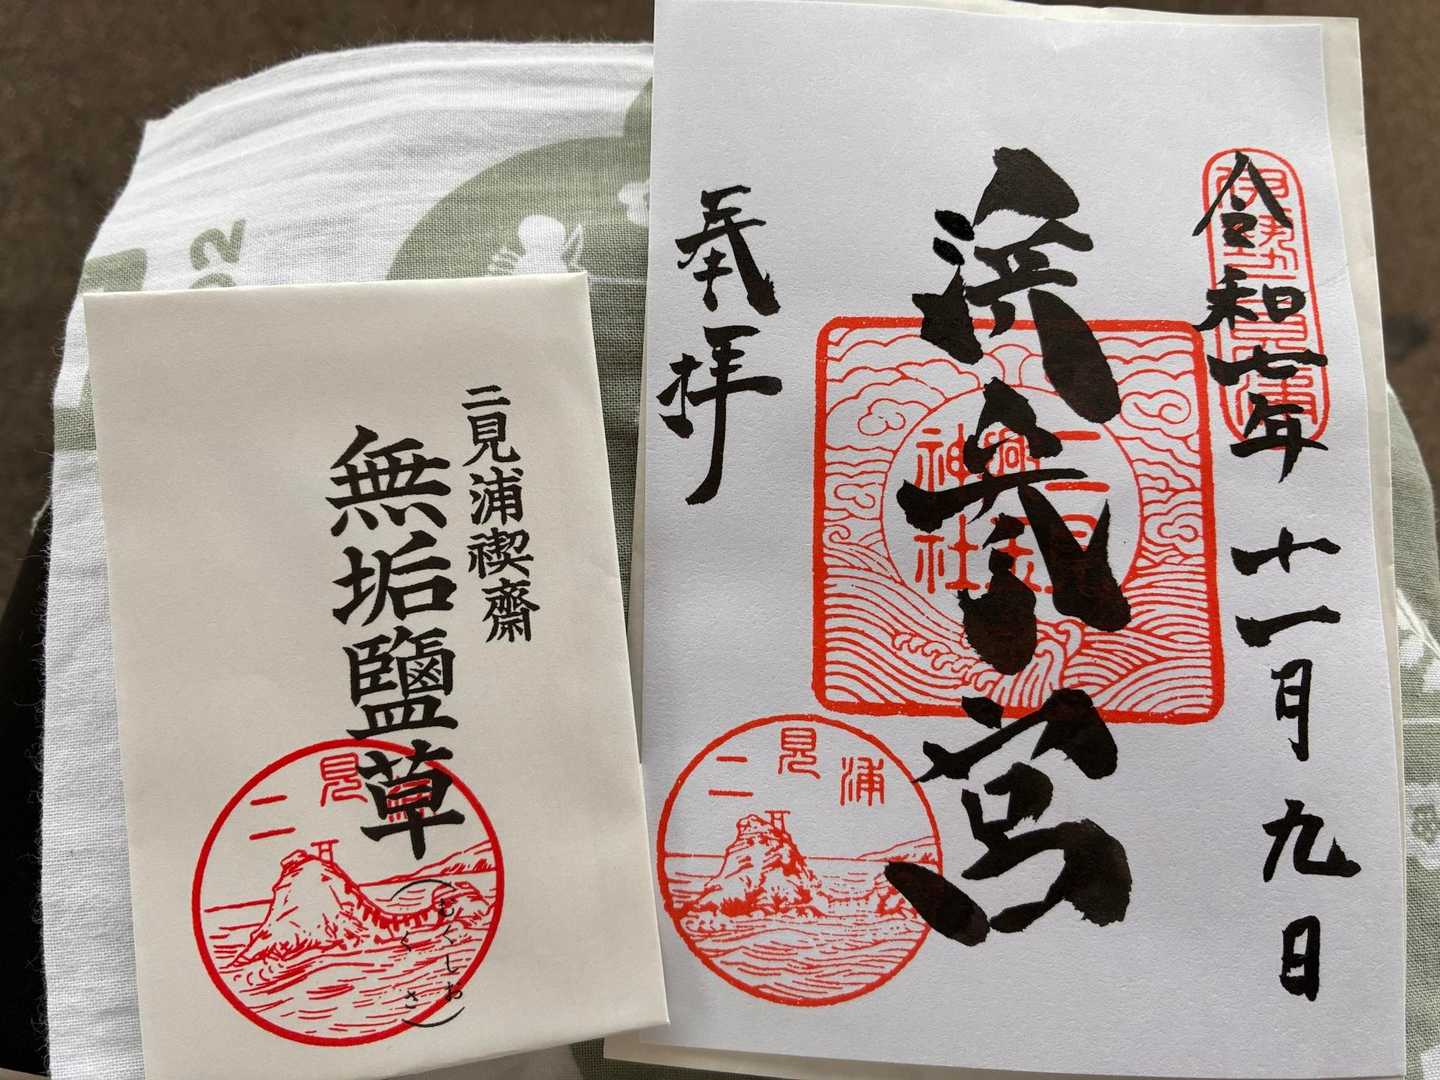 令和七年 十一月 九日
伊勢二見浦
浜参宮
二見
興玉
神社
奉拝
二見浦
二見浦禊齋
無垢鹽草
(むくしお
くさ)
二見浦